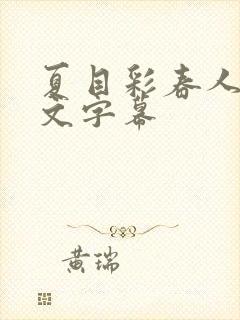 夏目彩春人
文字幕
黄瑞